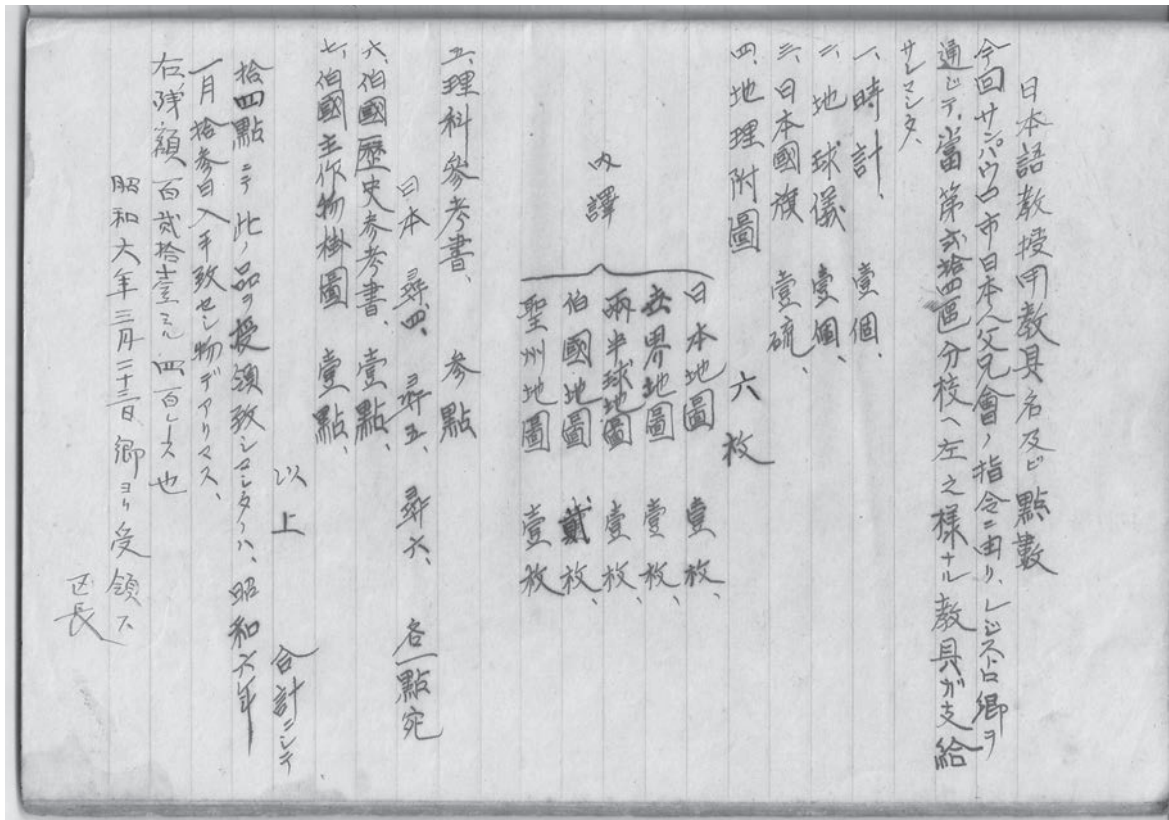 日本語教授用教具名及ビ點數
今回サンパウロ市日本人父兄會ノ指令ニ由リ、レジストロ郷ヲ
通ジテ、當第弐拾四區分校ヘ左之様ナル教具ガ支給
サレマシタ、
一、時計、 壹個、
二、地球儀 壹個、
三、日本國旗 壹硫、
四、地理附圖 六枚
内譯
日本地圖 壹枚、
世界地圖 壹枚、
兩半球地圖 壹枚、
伯國地圖 貳枚、
聖州地圖 壹枚
五、理科参考書、 参點
日本 尋四、尋五、尋六、各一點宛
六、伯國歴史参考書、壹點、
七、伯國主作物掛圖 壹點、
以上 合計ニシテ
拾四點ニテ此ノ品ヲ授領致シマシタノハ、昭和六年
一月拾参日入手致セシ物デアリマス、
右残額百貳拾壹ミル四百レース也
昭和六年三月二十三日、郷ヨリ受領ス
区長